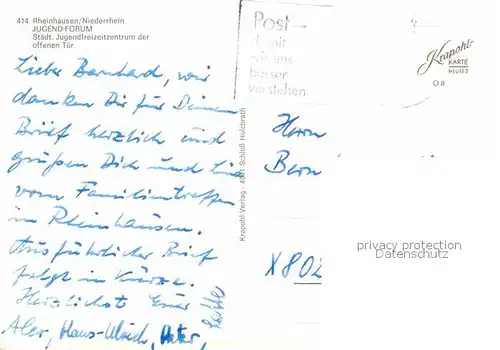 414 Rheinhausen/Niederrhein
JUGEND-FORUM
Städt. Jugendfreizeitzentrum der
offenen Tür
Lieber Bernhard, wir
danken Dir für Deinen
Brief herzlich und
grüßen Dich und
vom Familientreffen
in Rheinhausen.
Ausführlicher Brief
folgt in Kürze.
Herzlichst Euer
Hans-Ulrich, Peter,
Krapohl-Verlag - 4041 Schloß Hülchrath
Post-
damit
wir uns
besser
verstehen
Krapohl-
KARTE
NEUSS 2
O 8
Herrn
Bern
X 802
privacy protection
Datenschutz